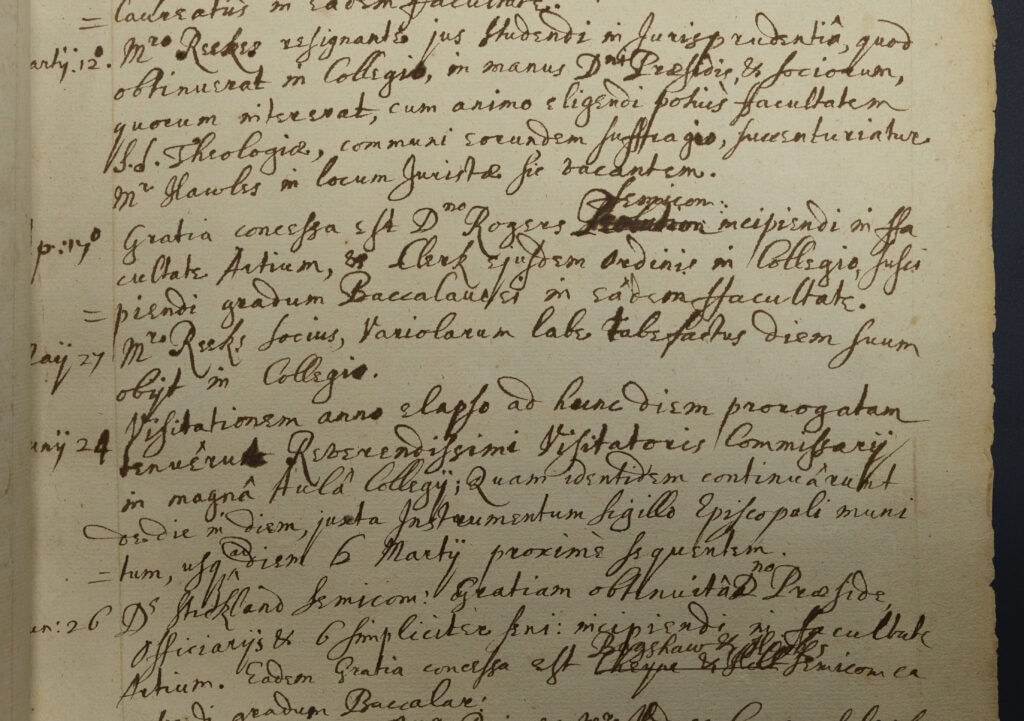 = laureatûs in eâdem ffacultate.
artij: 12°. Mro Reekes resignante jus studendi in Jurisprudentiâ, quod
obtinuerat in Collegio, in manus Dni Præsidis, & sociorum,
quorum intererat, cum animo eligendi potiùs ffacultatem
S.S. Theologiæ, communi eorundem suffragio, succenturiatur
Mr Hawles in locum Juristæ sic vacantem.
semicom:
p: 17° Gratia concessa est Dno Rogers incipiendi in ffa
cultate Artium, & Clerk ejusdem ordinis in Collegio, susci
= piendi gradum Baccalaurei in eâdem ffacultate.
aij 27 Mro Reeks socius, Variolarum labe tabefactus diem suum
obijt in Collegio.
Visitationem anno elapso ad hunc diem prorogatam
nij 24 tenuêrunt Reverendissimi Visitatoris Commissarij
in magnâ Aulâ Collegij; Quam identidem continuârunt
de die in diem, juxta Instrumentum sigillo Episcopali muni
= tum, usq ad diem 6 Martij proximè sequentem.
an: 26 Ds Stickland semicom: Gratiam obtinuit â Dno Præside,
Officiarijs & 6 simpliciter seni: incipiendi in ffacultate
Bagshaw &
Artium. Eadem Gratia concessa est Cheyne & semicom ca
gradum Baccalar: